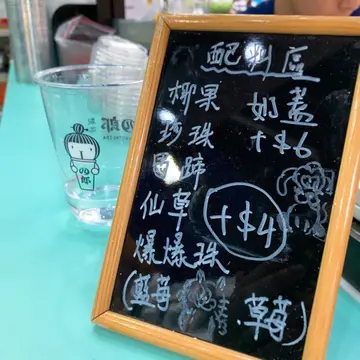 配料區
椰果 奶蓋
珍珠 +$6
馬蹄
仙草 +$4
爆爆珠
(藍莓 草莓)
郎